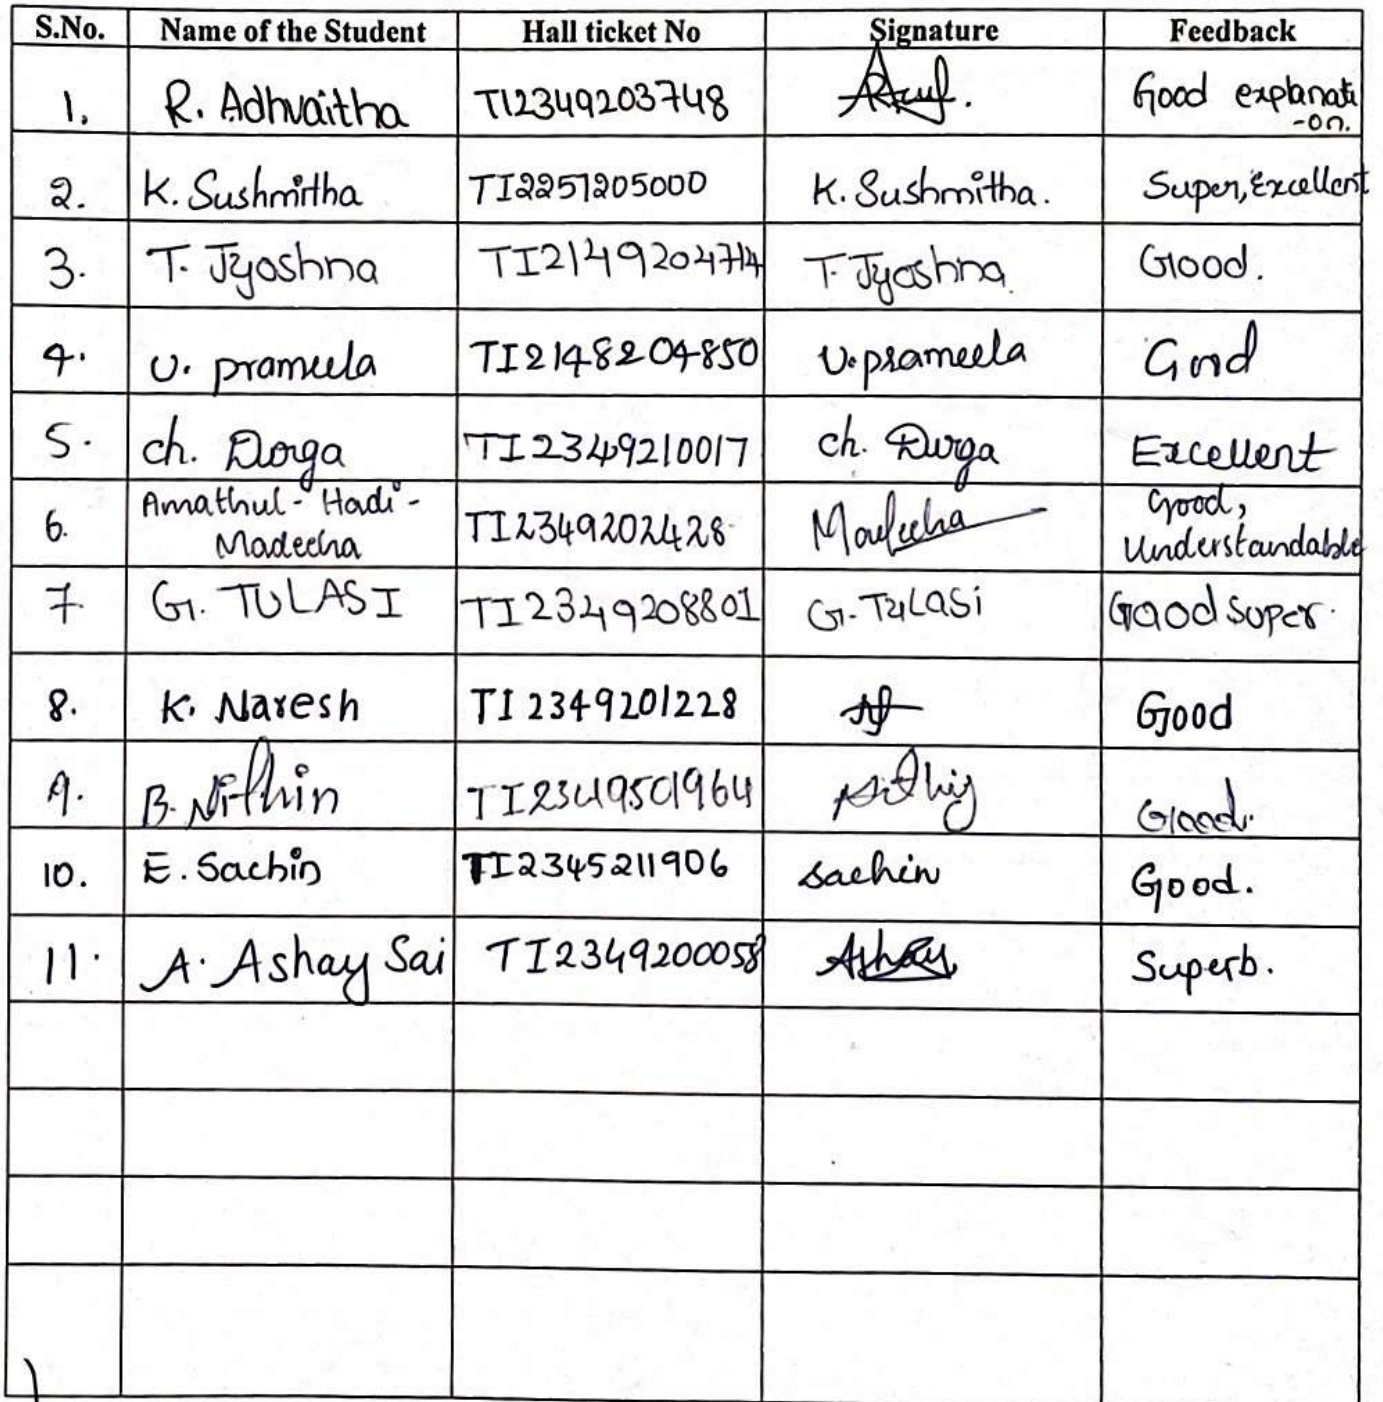 S.No. Name of the Student Hall ticket No Signature Feedback
1. R. Adhvaitha TI2349203748 Good explanati
-on.
2. K. Sushmitha TI2251205000 K. Sushmitha. Super, Excellent
3. T. Jyoshna TI2149204714 T. Jyoshna Good.
4. U. prameela TI2148204850 U. prameela Good
5. ch. Dorga TI2349210017 ch. Durga Excellent
6. Amathul - Hadi - Madeeha TI2349202428 Madeeha Good,
Understandable
7. G. TULASI TI2349208801 G. TuLaSi Good super.
8. K. Naresh TI2349201228 Good
9. B. Nithin TI2349501964 Good.
10. E. Sachin TI2345211906 sachin Good.
11. A. Ashay Sai TI2349200058 Ashay Superb.